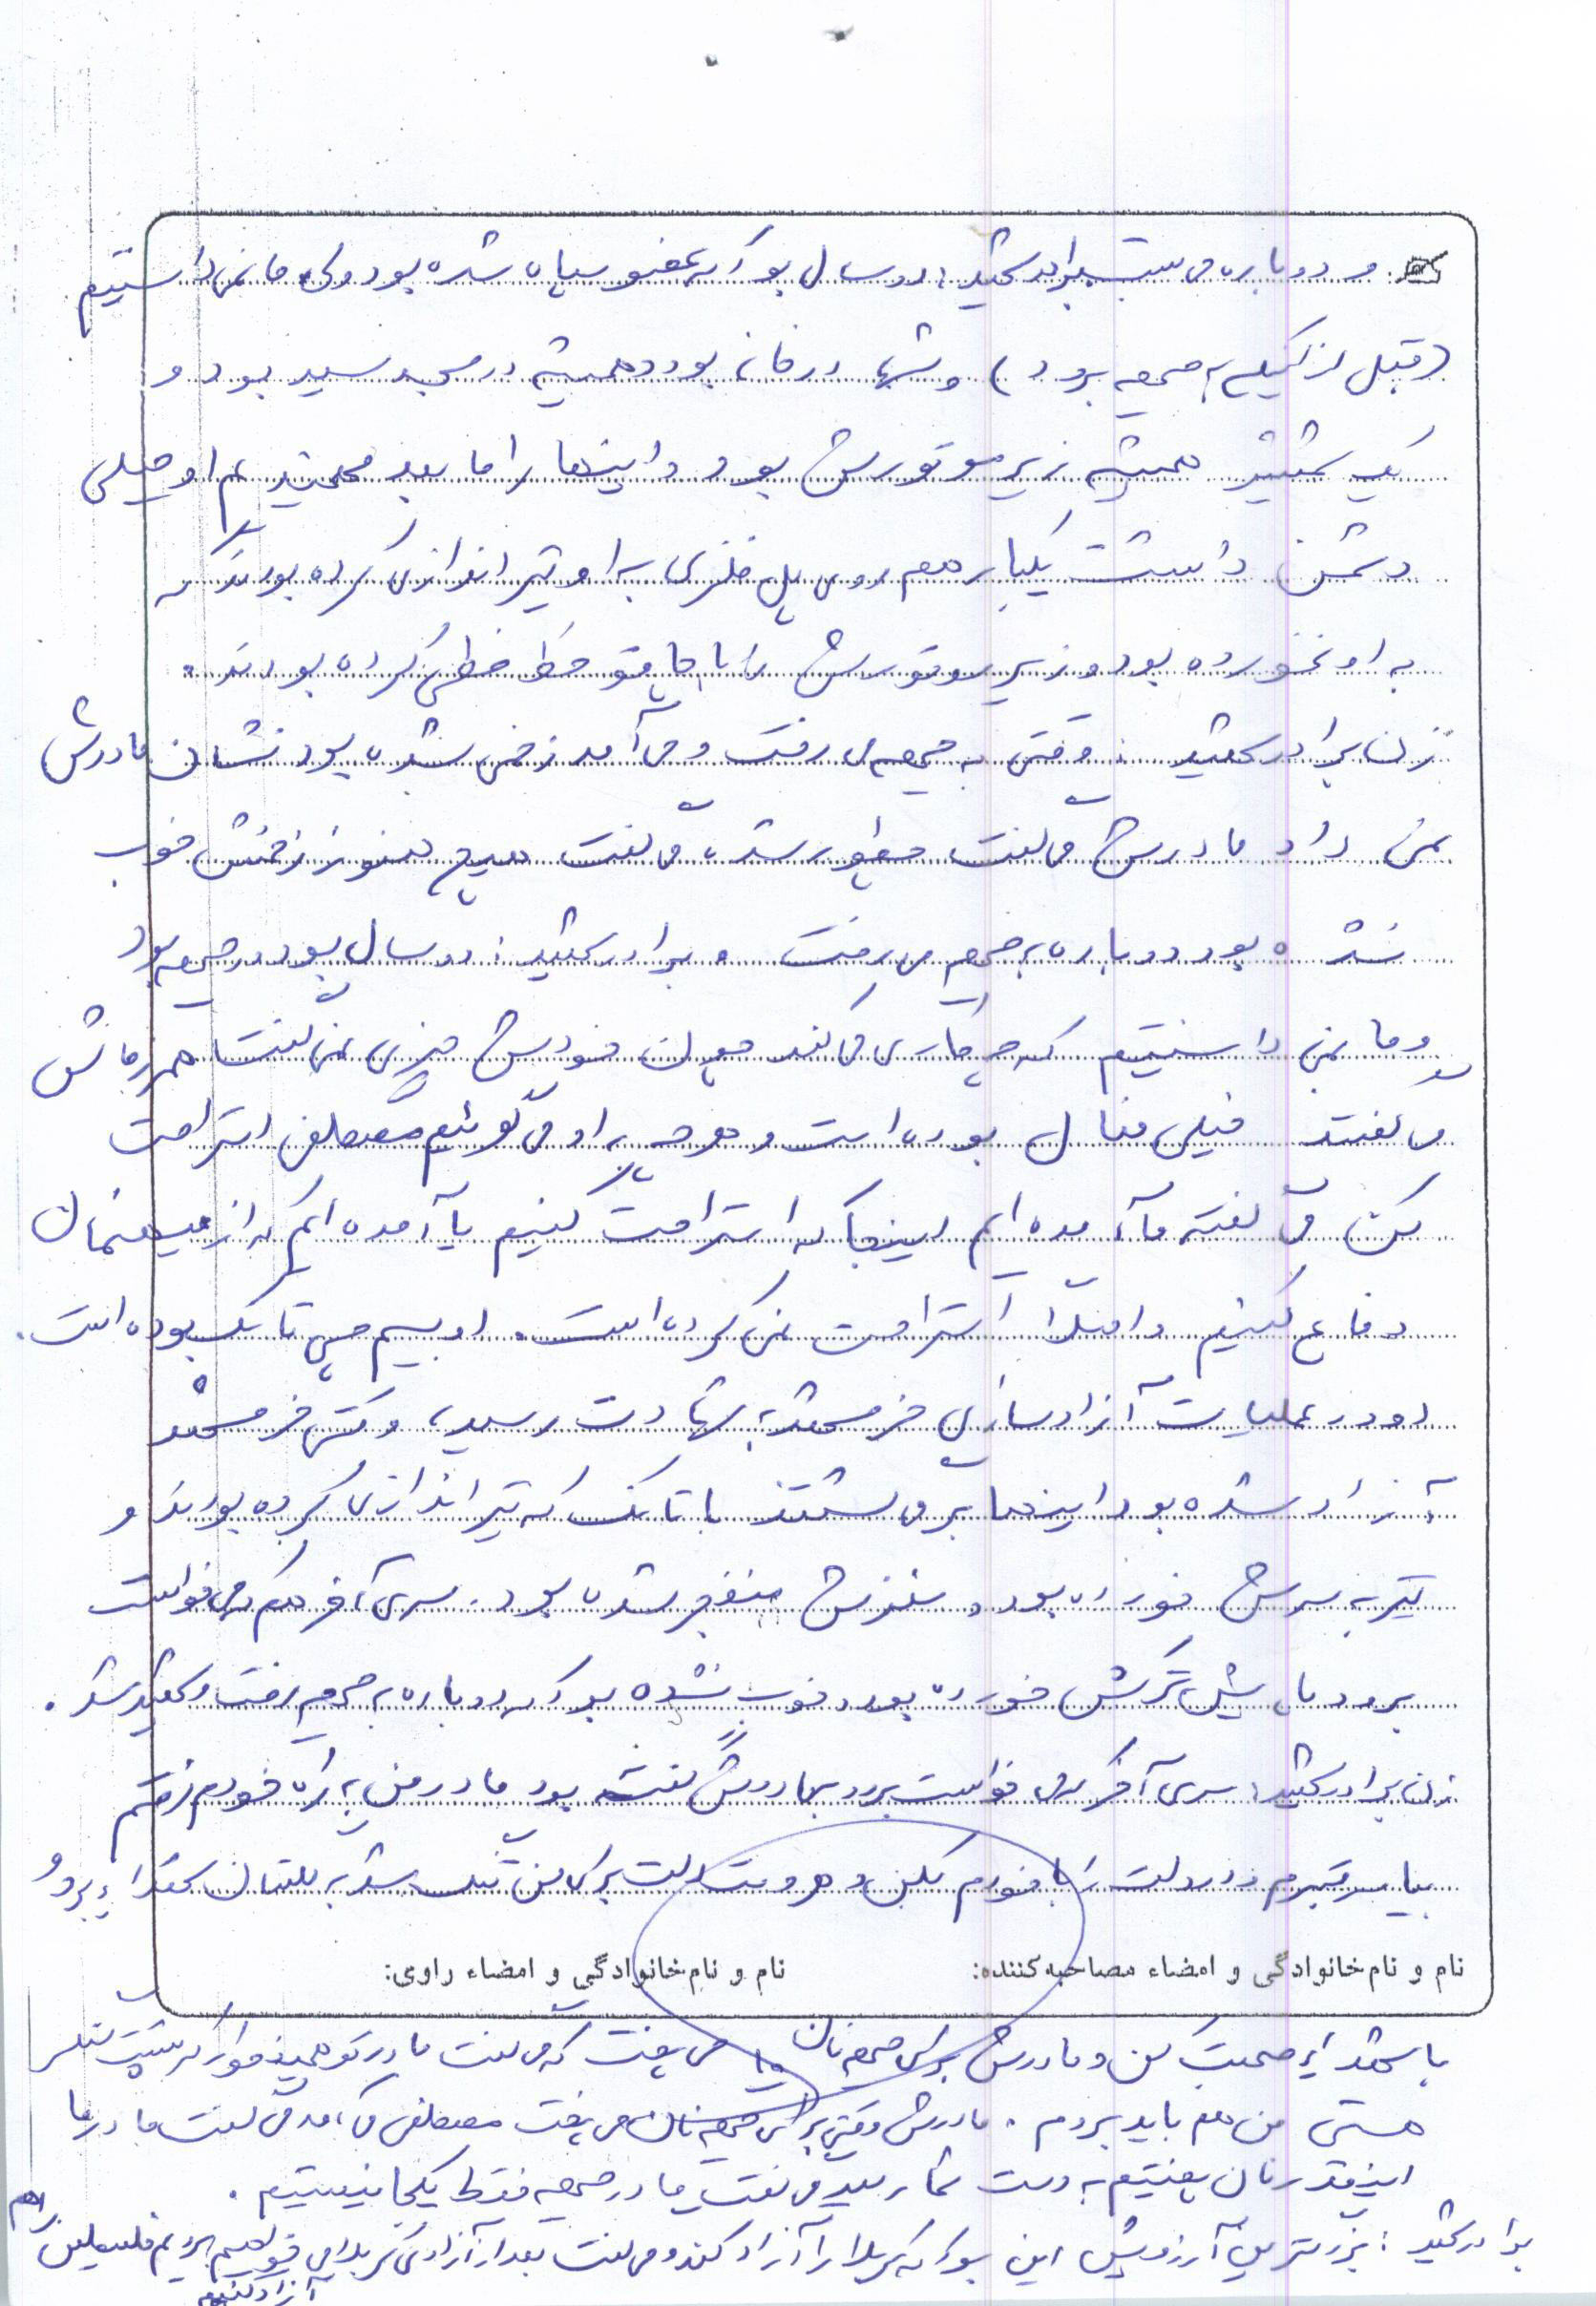 و دوباره می رفت برادر شهید: دو سال بود که عضو سپاه شده بود ولی ما نمی دانستیم
(قبل از اینکه به جبهه برود) و شبها در خانه نبود و همیشه در مسجد سید بود و
یک شمشیر همیشه زیر موتورش بود و اینها را ما بعد فهمیدیم او خیلی
دشمن داشت یکبار هم روی پل فلزی به او تیراندازی کرده بودند که
به او نخورده بود و زیر موتورش را با چاقو خط خطی کرده بودند.
زن برادر شهید: وقتی به جبهه می رفت و می آمد زخمی شده بود نشان مادرش
نمی داد مادرش می گفت چطور شده می گفت هیچ هنوز زخمش خوب
نشده بود دوباره به جبهه می رفت و برادر شهید: دو سال بود در جبهه بود
و ما نمی دانستیم که چه کاری می کند چون خودش چیزی نمی گفت همرزمانش
می گفتند خیلی فعال بوده است و هر چه به او می گوئیم مصطفی استراحت
کن می گفته ما آمده ایم اینجا که استراحت کنیم یا آمده ایم که از میهنمان
دفاع کنیم و اصلاً استراحت نمی کرده است. او بیسیم چی تانک بوده است.
او در عملیات آزادسازی خرمشهر به شهادت رسید، وقتی خرمشهر
آزاد شده بود اینها برمی گشتند با تانک که تیراندازی کرده بودند و
تیر به سرش خورده بود و مغزش منفجر شده بود. سری آخر هم که می خواست
برود پایش ترکش خورده بود و خوب نشده بود که دوباره به جبهه رفت و شهید شد.
زن برادر شهید: سری آخر که می خواست برود به مادرش گفته بود مادر من به راه خودم رفتم
بیا سر قبرم درد دلت را با خودم بکن و هر وقت دلت برای من تنگ شد به گلستان شهداء برو و
نام و نام خانوادگی و امضاء مصاحبه کننده: نام و نام خانوادگی و امضاء راوی:
با شهداء صحبت کن و مادرش برای جبهه نان می پخت که می گفت مادر تو همینطور که پشت سنگر
هستی من هم باید بروم. مادرش وقتی برای جبهه نان می پخت مصطفی می آمد می گفت مادر ما
این قدر نان پختیم به دست شما رسید می گفت ما در جبهه فقط یکجا نیستیم.
برادر شهید: بزرگترین آرزویش این بود که کربلا را آزاد کند و می گفت بعد از آزادی کربلا می خواهیم برویم فلسطین را هم
آزاد کنیم